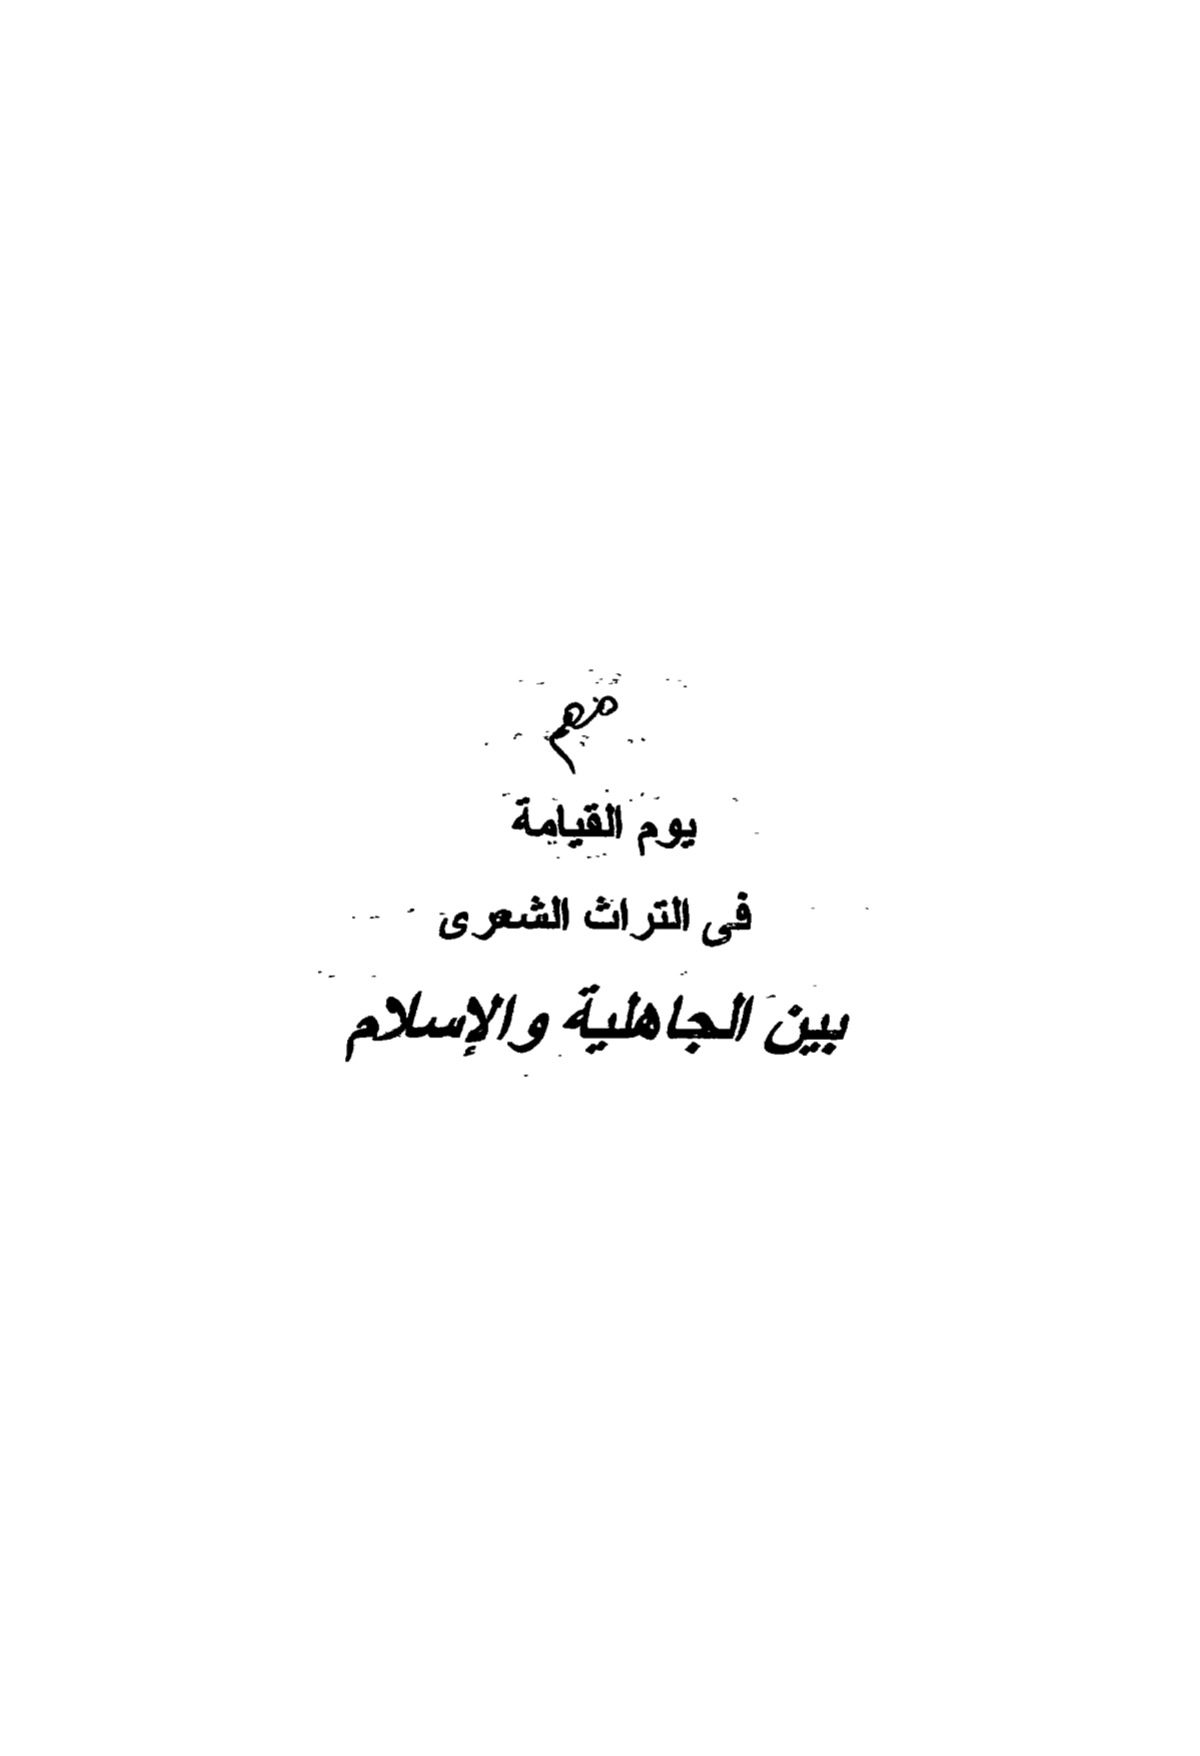 يوم القيامة
فى التراث الشعرى
بين الجاهلية والإسلام